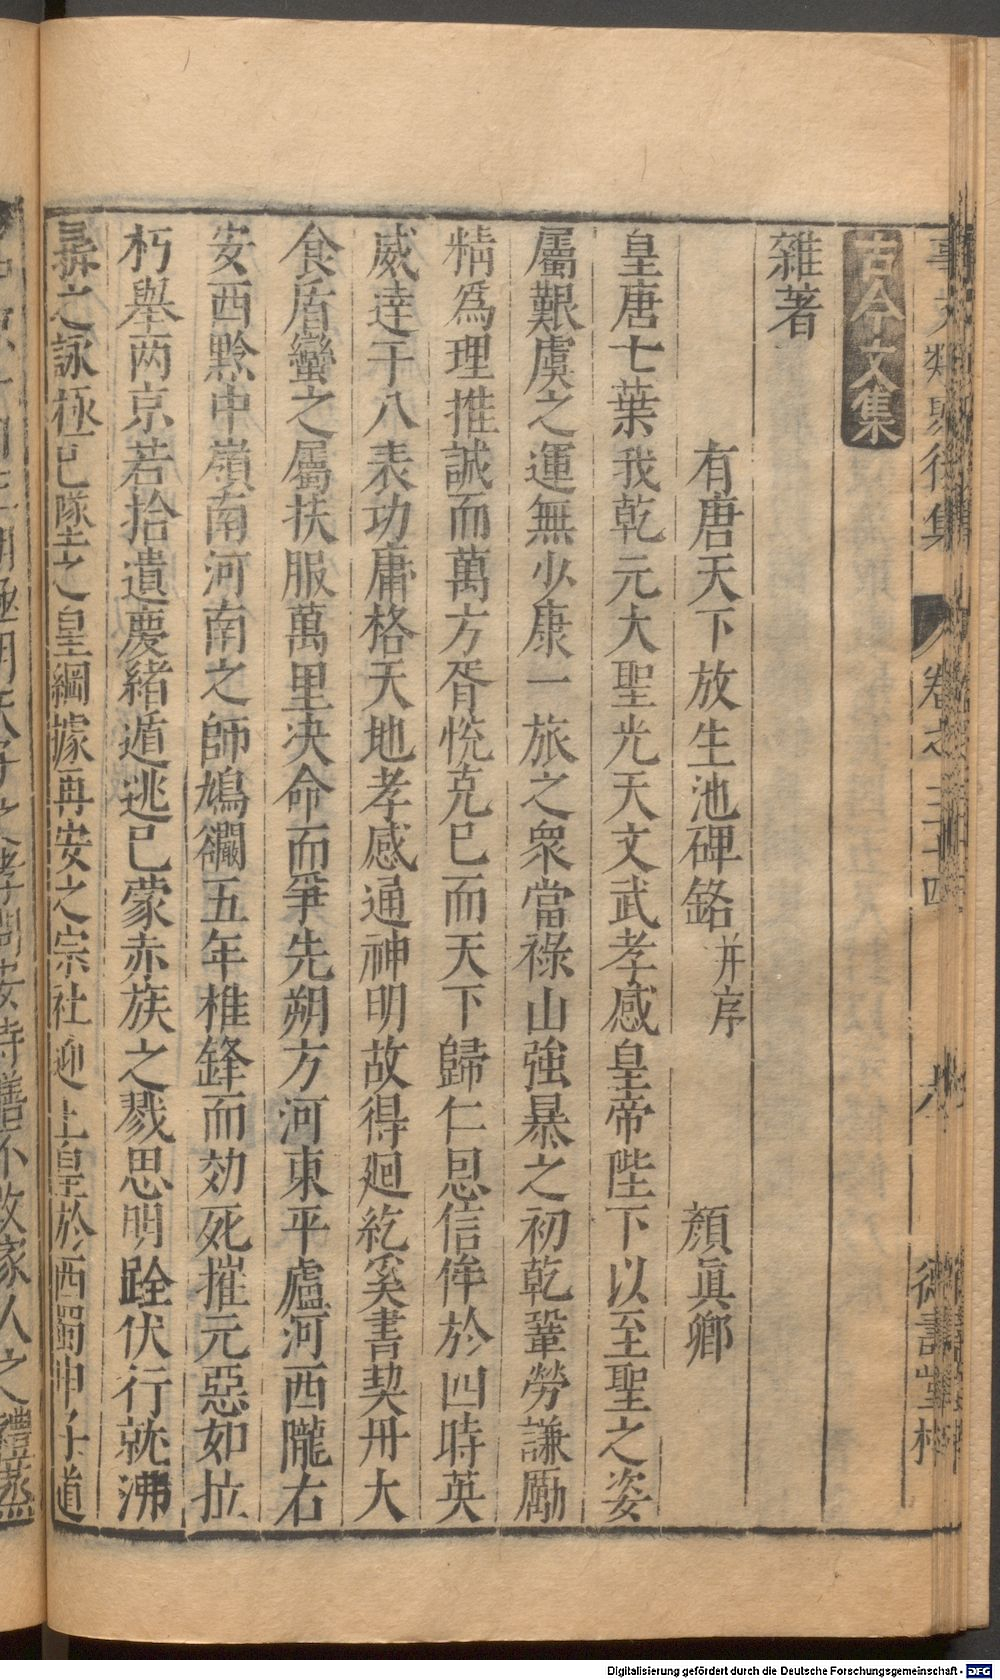 古今文集
雜著
有唐天下放生池碑銘并序 顏眞卿
皇唐七葉我乾元大聖光天文武孝感皇帝陛下以至聖之姿
屬艱虞之運無少康一旅之衆當祿山強暴之初乾鞏勞謙勵
精為理推誠而萬方胥悅克巳而天下歸仁恩信侔於四時英
威逹于八表功庸格天地孝感通神明故得廻紇奚書契丹大
食盾蠻之屬扶服萬里决命而爭先朔方河東平盧河西隴右
安西黔中嶺南河南之師鳩䦨五年椎鋒而効死摧元惡如拉
朽舉两京若拾遺慶緒遁逃巳蒙赤族之戮思明跧伏行就沸
彞之詠極巳墜之皇綱據再安之宗社迎上皇於西蜀申子道
事文類聚後集 卷之三十四 德壽堂梓
Digitalisierung gefördert durch die Deutsche Forschungsgemeinschaft - DFG